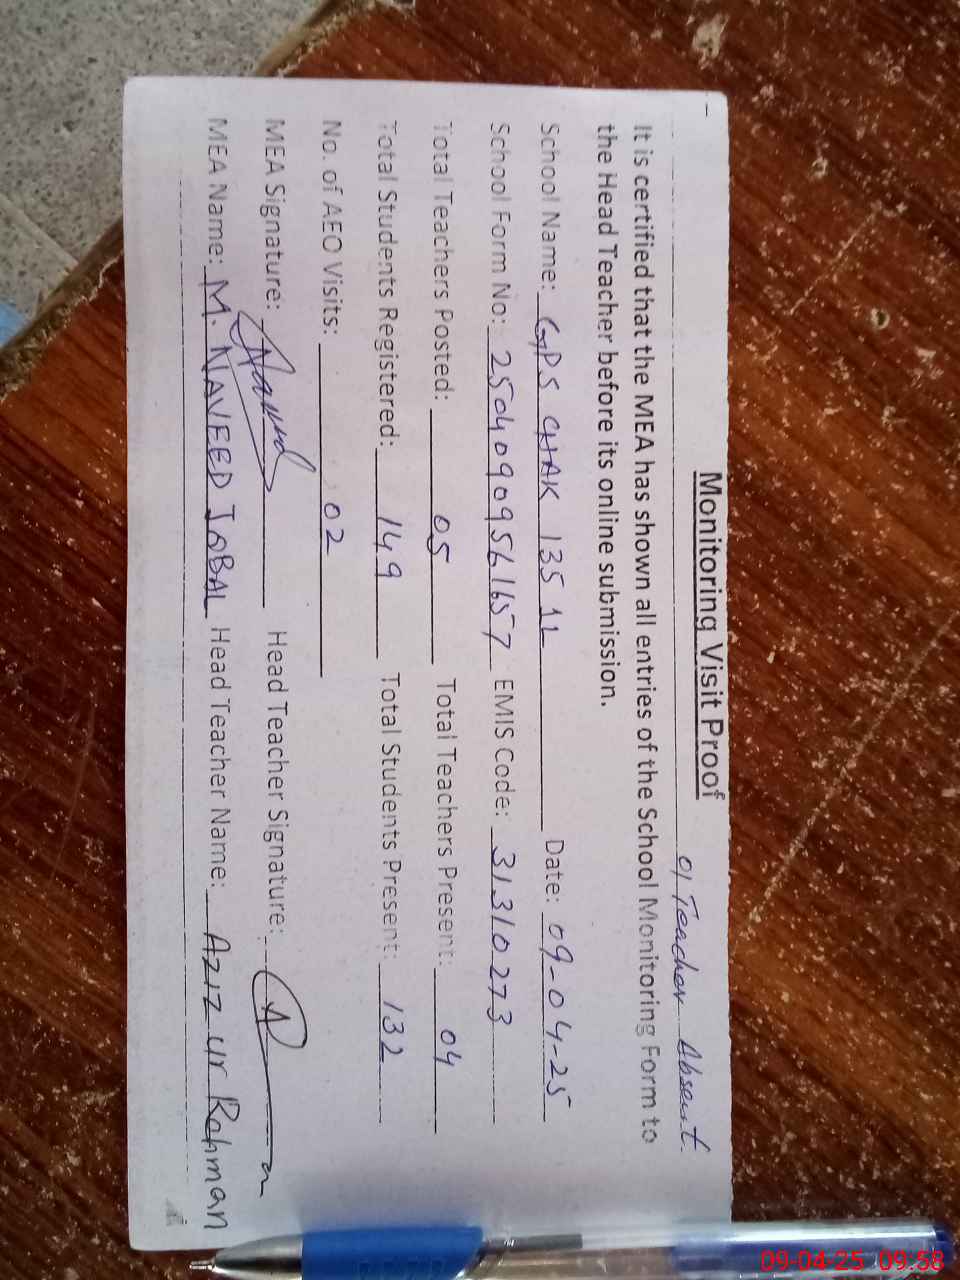 Monitoring Visit Proof
01 Teacher Absent.
It is certified that the MEA has shown all entries of the School Monitoring Form to
the Head Teacher before its online submission.
School Name: GPS CHAK 135 1L Date: 09-04-25
School Form No: 25040909561657 EMIS Code: 31310273
Total Teachers Posted: 05 Total Teachers Present: 04
Total Students Registered: 149 Total Students Present: 132
No. of AEO Visits: 02
MEA Signature: Head Teacher Signature:
MEA Name: M. NAVEED IQBAL Head Teacher Name: Aziz ur Rahman
09-04-25 09:58